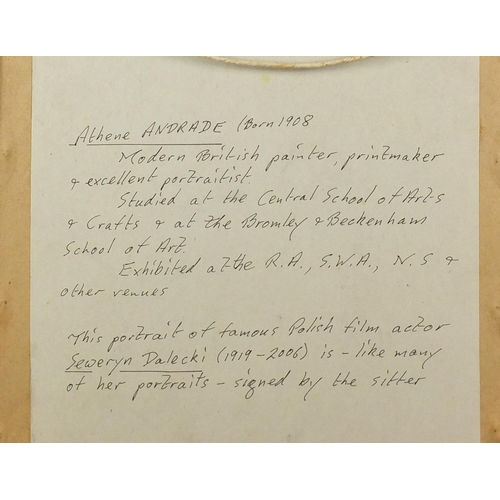 Athene ANDRADE (Born 1908
Modern British painter, printmaker
& excellent portraitist
Studied at the Central School of Arts
& Crafts & at the Bromley & Beckenham
School of Art.
Exhibited at the R.A., S.W.A., N.S &
other venues
This portrait of famous Polish film actor
Seweryn Dalecki (1919-2006) is - like many
of her portraits - signed by the sitter